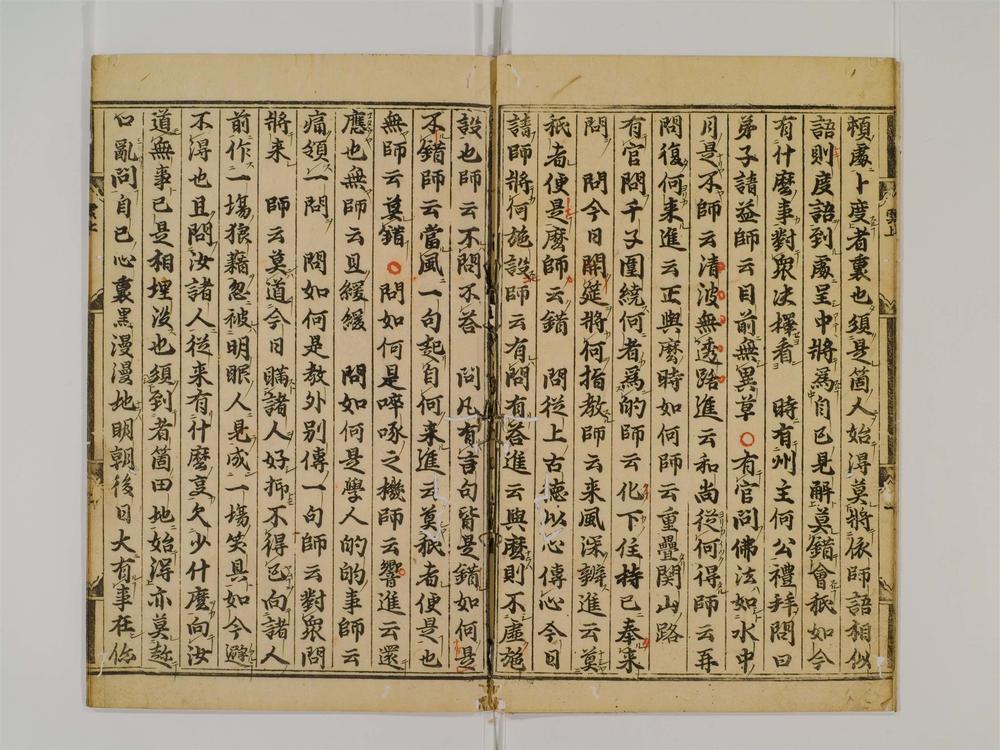 頼處卜度者裏也須是箇人始得莫將依師語相似
語則度語到處呈中將爲自己見解莫錯會秖如今
有什麼事對衆决擇看 時有州主何公禮拜問曰
弟子請益師云目前無異草○有官問佛法如水中
月是不師云清波無透路進云和尚從何得師云再
問復何来進云正與麼時如何師云重疊関山路
有官問千子圍繞何者爲的師云化下住持已奉来
問 問今日開筵將何指教師云来風深辨進云莫
秖者便是麼師云錯 問從上古德以心傳心今日
請師將何施設師云有問有答進云與麼則不虚施
設也師云不問不答 問凡有言句皆是錯如何是
不錯師云當風一句起自何来進云莫秖者便是也
無師云莫錯○問如何是啐啄之機師云響進云還
應也無師云且緩緩 問如何是學人的的事師云
痛領一問 問如何是教外别傳一句師云對衆問
將来 師云莫道今日瞞諸人好抑不得已向諸人
前作一場狼藉忽被明眼人見成一場笑具如今避
不得也且問汝諸人從来有什麼事欠少什麼向汝
道無事已是相埋没也須到者箇田地始得亦莫趂
口亂問自己心裏黒漫漫地明朝後日大有事在你